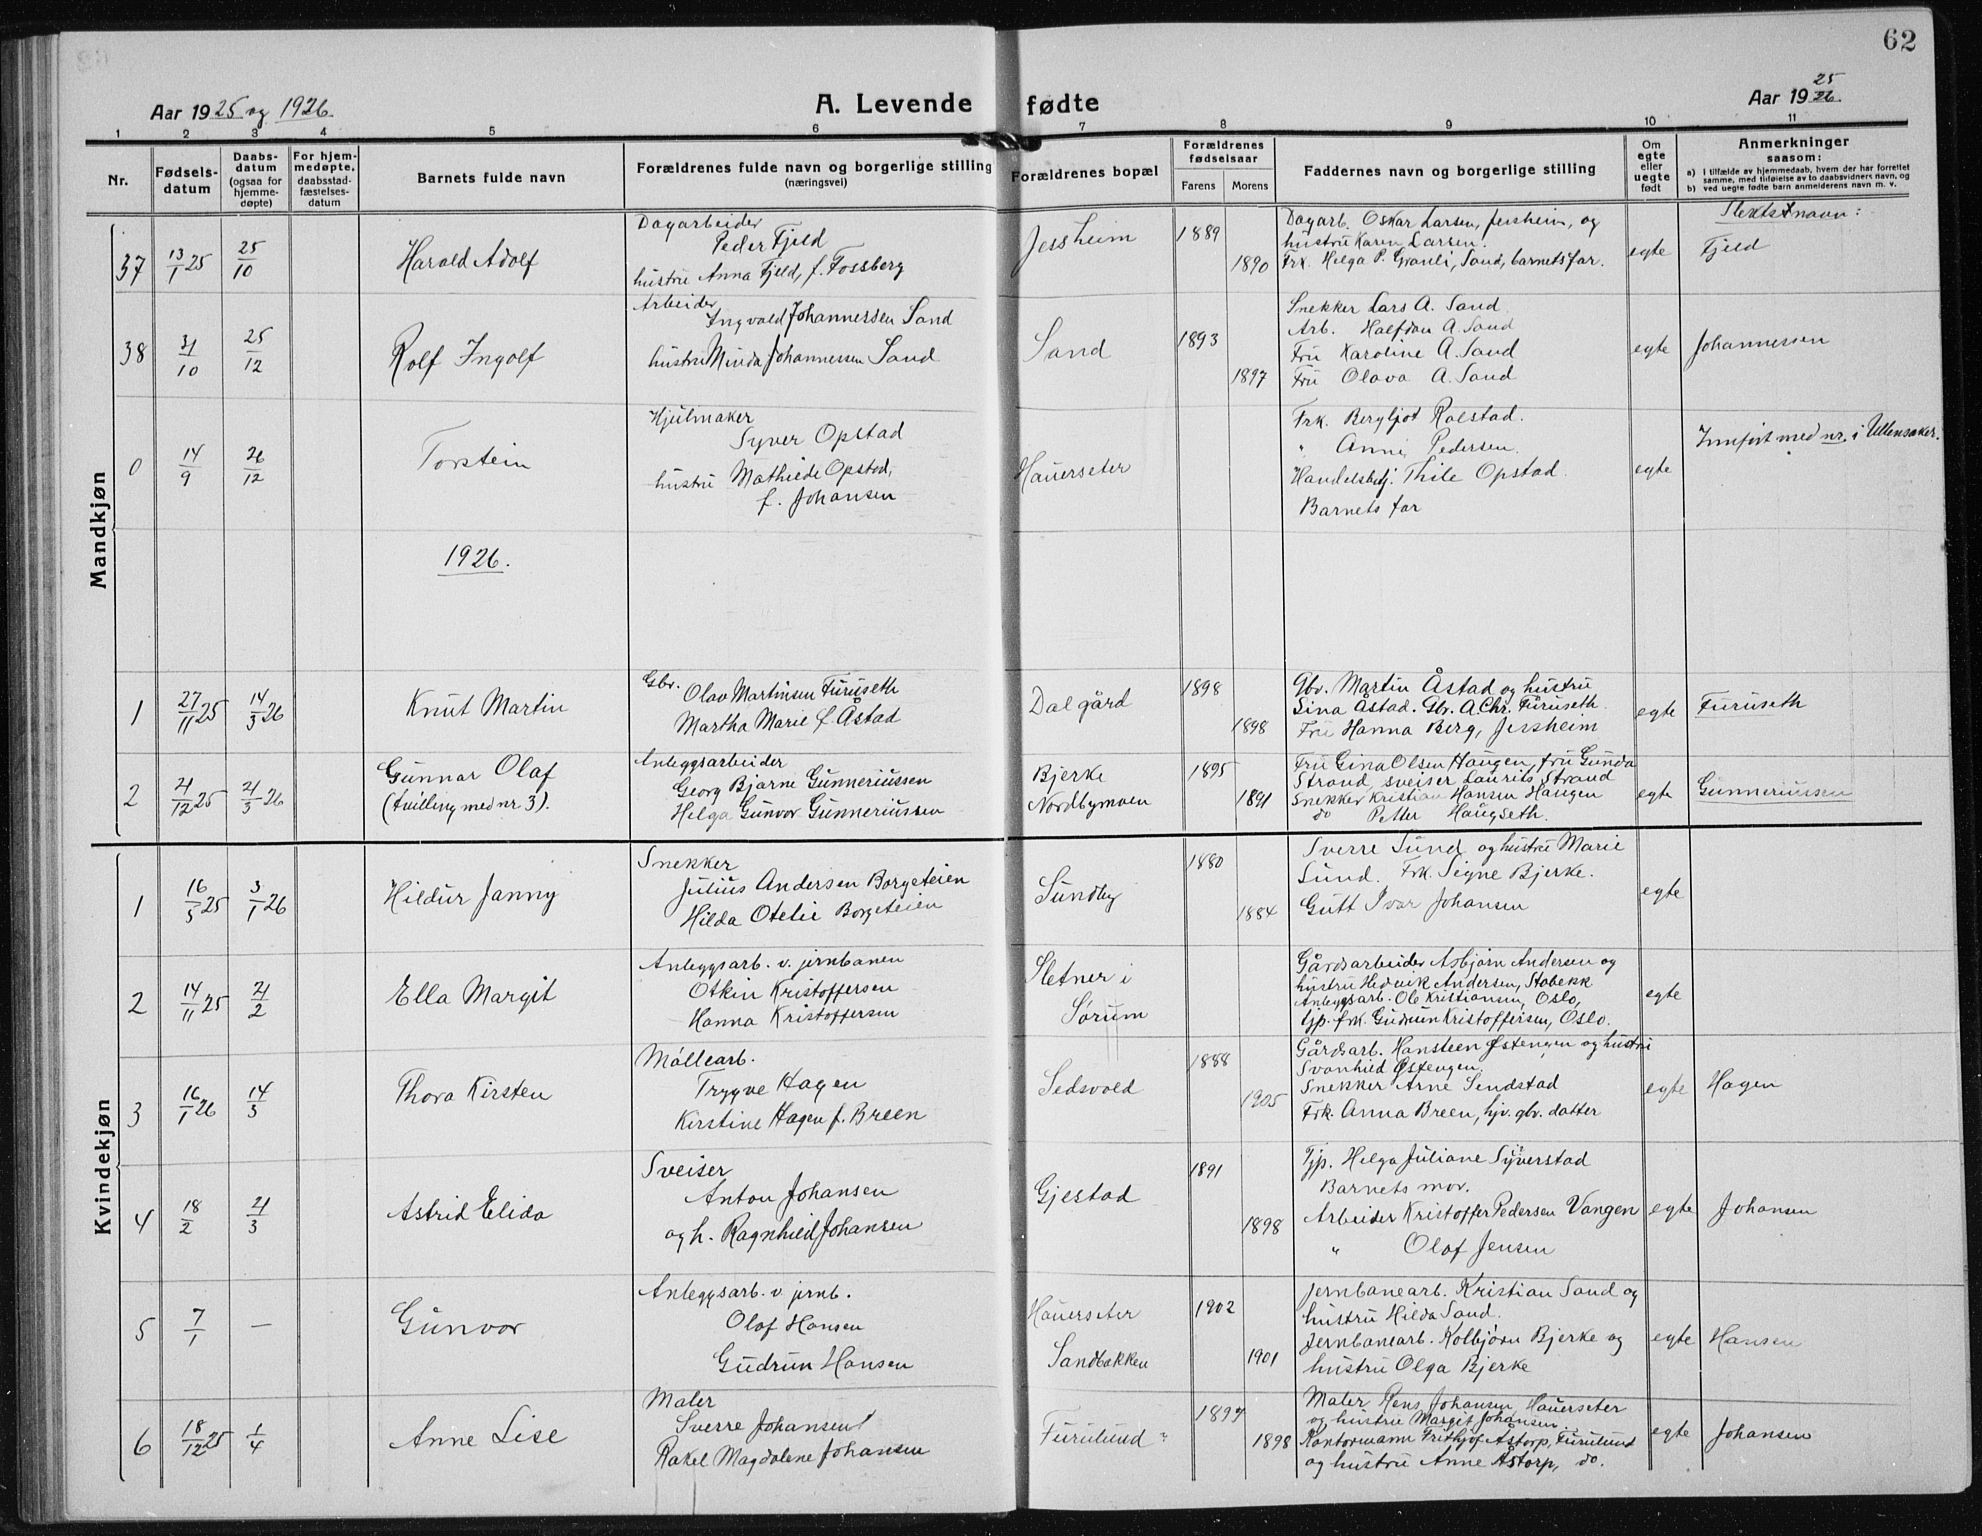 62
Aar 1925 og 1926.
A. Levende fødte
Aar 1925 26.
1 2 3 4 5 6 7 8 9 10 11
Nr.
Fødselsdatum
Daabsdatum (ogsaa for hjemmedøpte)
For hjemmedøpte, daabsstadfæstelsesdatum
Barnets fulde navn
Forældrenes fulde navn og borgerlige stilling (næringsvei)
Forældrenes bopæl
Forældrenes fødselsaar
Farens Morens
Faddernes navn og borgerlige stilling
Om egte eller uegte født
Anmerkninger
saasom:
a) i tilfælde av hjemmedaab, hvem der har forrettet samme, med tilføielse av to daabsvidners navn, og
b) ved uegte fødte barn anmelderens navn m. v.
Mandkjøn
37
13/1 25
25/10
Harald Adolf
Dagarbeider
Peder Fjeld
hustru Anna Fjeld, f. Fossberg
Jessheim
1889
1890
Dagarb. Oskar Larsen, Jessheim, og
hustru Karen Larsen.
Frk. Helga P. Granli, Sand, barnets far.
egte
Slektsnavn:
Fjeld
38
31/10
25/12
Rolf Ingolf
Arbeider
Ingvald Johannessen Sand
hustru Minda Johannessen Sand
Sand
1893
1897
Snekker Lars A. Sand
Arb. Halfdan A. Sand
Fru Karoline A. Sand
Fru Olava A. Sand
egte
Johannessen
0
14/9
26/12
Torstein
Hjulmaker
Syver Opstad
hustru Mathilde Opstad,
f. Johansen
Hauerseter
Frk. Bergljot Rolstad.
" Anni Pedersen.
Handelsbetj. Thile Opstad.
Barnets far
egte
Innført med nr. i Ullensaker.
1926.
1
27/11 25
14/3 26
Knut Martin
Gbr. Olav Martinsen Furuseth
Martha Marie f. Åstad
Dalgård
1898
1898
Gbr. Martin Åstad og hustru
Sina Åstad. Gbr. A. Chr. Furuseth.
Fru Hanna Berg, Jessheim
egte
Furuseth
2
21/12 25
21/3 26
Gunnar Olaf
(tvilling med nr 3).
Anleggsarbeider
Georg Bjarne Gunneriussen
Helga Gunvor Gunneriussen
Bjerke
Nordbymoen
1895
1891
Fru Gina Olsen Haugen, fru Gunda
Strand, sveiser Laurits Strand
Snekker Kristian Hansen Haugen
do Petter Haugseth.
egte
Gunneriussen
Kvindekjøn
1
16/5 25
3/1 26
Hildur Janny
Snekker
Julius Andersen Borgeteien
Hilda Otelie Borgeteien
Sundby
1880
1884
Sverre Sund og hustru Marie
Sund. Frk. Signe Bjerke.
Gutt Ivar Johansen
egte
2
14/11 25
21/2
Ella Margit
Anleggsarb. v. jernbanen
Otkin Kristoffersen
Hanna Kristoffersen
Sletner i
Sørum
Gårdsarbeider Asbjørn Andersen og
hustru Hedvik Andersen, Stabekk
Anleggsarb. Ole Kristiansen, Oslo,
tjp. frk. Gudrun Kristoffersen, Oslo.
egte
3
16/1 26
14/3
Thora Kirsten
Møllearb.
Trygve Hagen
Kirstine Hagen f. Breen
Sedsvold
1888
1905
Gårdsarb. Hansteen Østengen og hustru
Svanhild Østengen.
Snekker Arne Sendstad
Frk. Anna Breen, hjv. gbr. datter
egte
Hagen
4
18/2
21/3
Astrid Elida
Sveiser
Anton Johansen
og h. Ragnhild Johansen
Gjestad
1891
1898
Tjp. Helga Juliane Syverstad
Barnets mor.
Arbeider Kristoffer Pedersen Vangen
" Olaf Jensen
egte
Johansen
5
7/1
—
Gunvor
Anleggsarb. v. jernb.
Olaf Hansen
Gudrun Hansen
Hauerseter
Sandbakken
1902
1901
Jernbanearb. Kristian Sand og
hustru Hilda Sand.
Jernbanearb. Kolbjørn Bjerke og
hustru Olga Bjerke
egte
Hansen
6
18/12 25
1/4
Anne Lise
Maler
Sverre Johansen
Rakel Magdalene Johansen
Furulund "
1897
1898
Maler Rens Johansen, Hauerseter
og hustru Margit Johansen.
Kontormann Frithjof Åstorp, Furulund
og hustru Anne Åstorp, do.
egte
Johansen